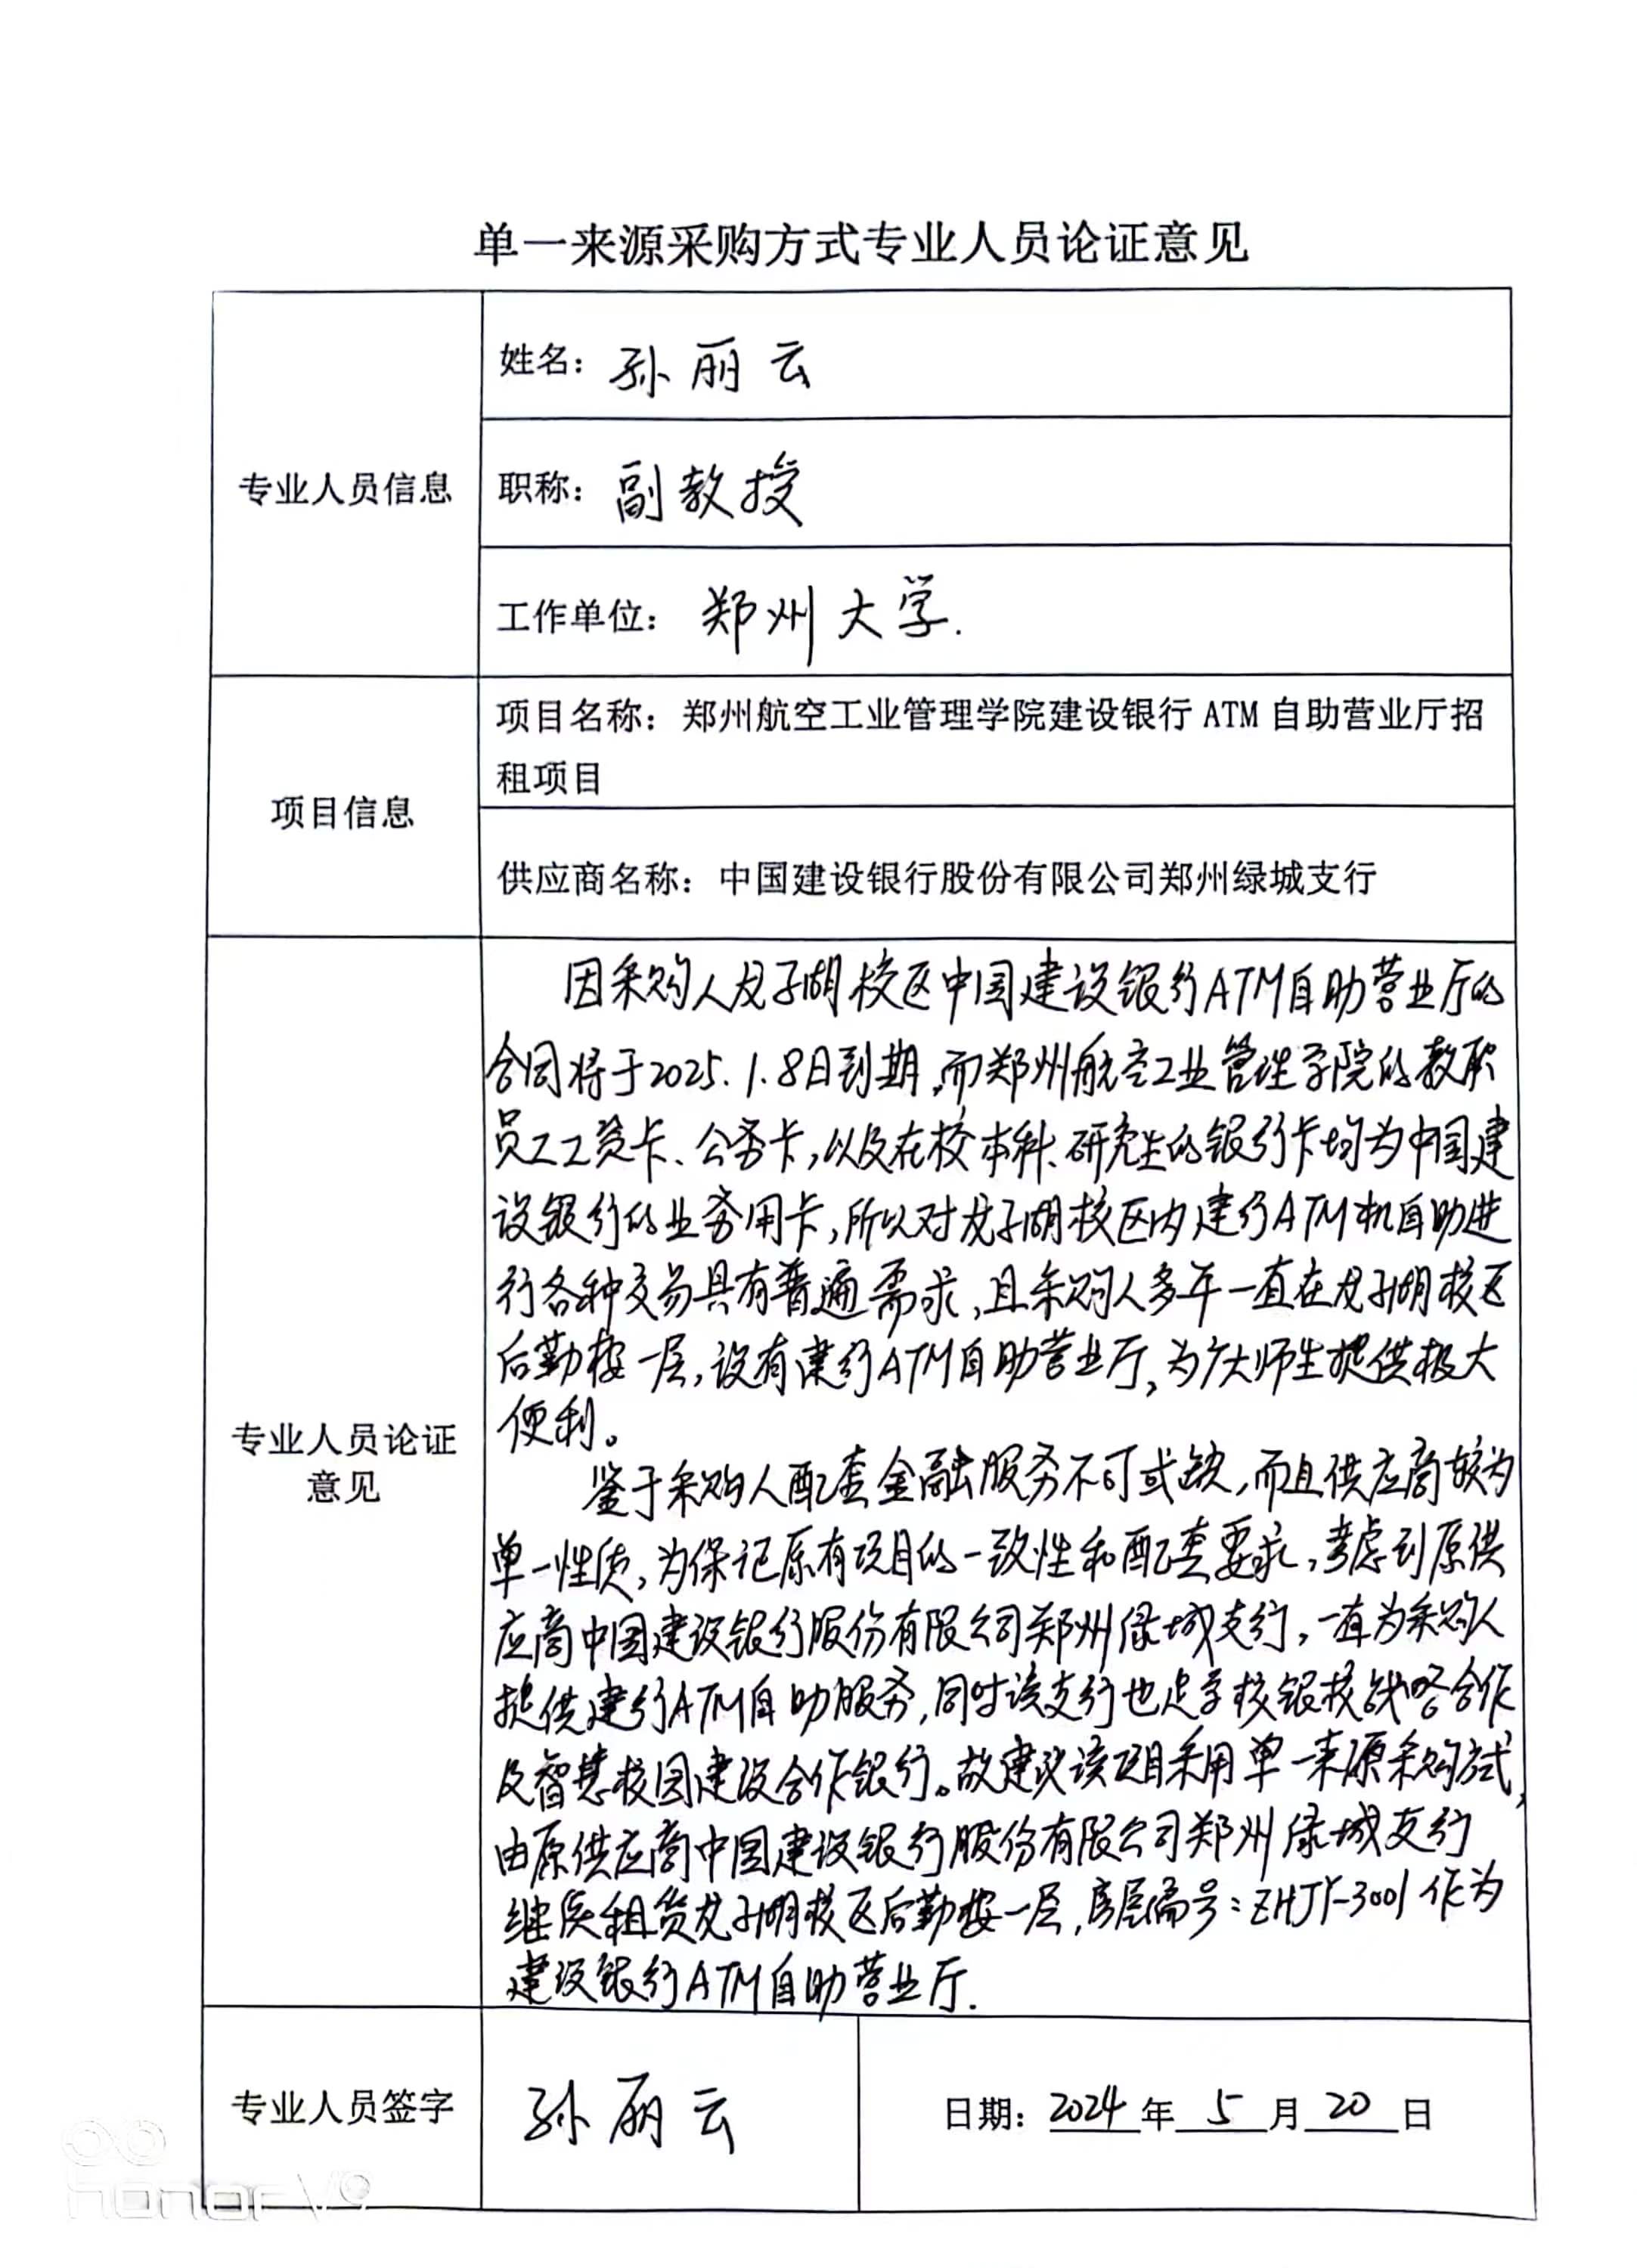 单一来源采购方式专业人员论证意见
专业人员信息
姓名：孙丽云
职称：副教授
工作单位：郑州大学.
项目信息
项目名称：郑州航空工业管理学院建设银行 ATM 自助营业厅招
租项目
供应商名称：中国建设银行股份有限公司郑州绿城支行
专业人员论证
意见
因采购人龙子湖校区中国建设银行ATM自助营业厅的
合同将于2025.1.8日到期,而郑州航空工业管理学院的教职
员工工资卡、公务卡,以及在校本科、研究生的银行卡均为中国建
设银行的业务用卡,所以对龙子湖校区内建行ATM机自助进
行各种交易具有普遍需求,且采购人多年一直在龙子湖校区
后勤楼一层,设有建行ATM自助营业厅,为广大师生提供极大
便利。
鉴于采购人配套金融服务不可或缺,而且供应商较为
单一性质,为保证原有项目的一致性和配套要求,考虑到原供
应商中国建设银行股份有限公司郑州绿城支行,一直为采购人
提供建行ATM自助服务,同时该支行也是学校银校战略合作
及智慧校园建设合作银行。故建议该项目采用单一来源采购方式,
由原供应商中国建设银行股份有限公司郑州绿城支行
继续租赁龙子湖校区后勤楼一层,房屋编号:ZHJY-3001作为
建设银行ATM自助营业厅.
专业人员签字
孙丽云
日期：2024年 5 月 20 日
honor V9